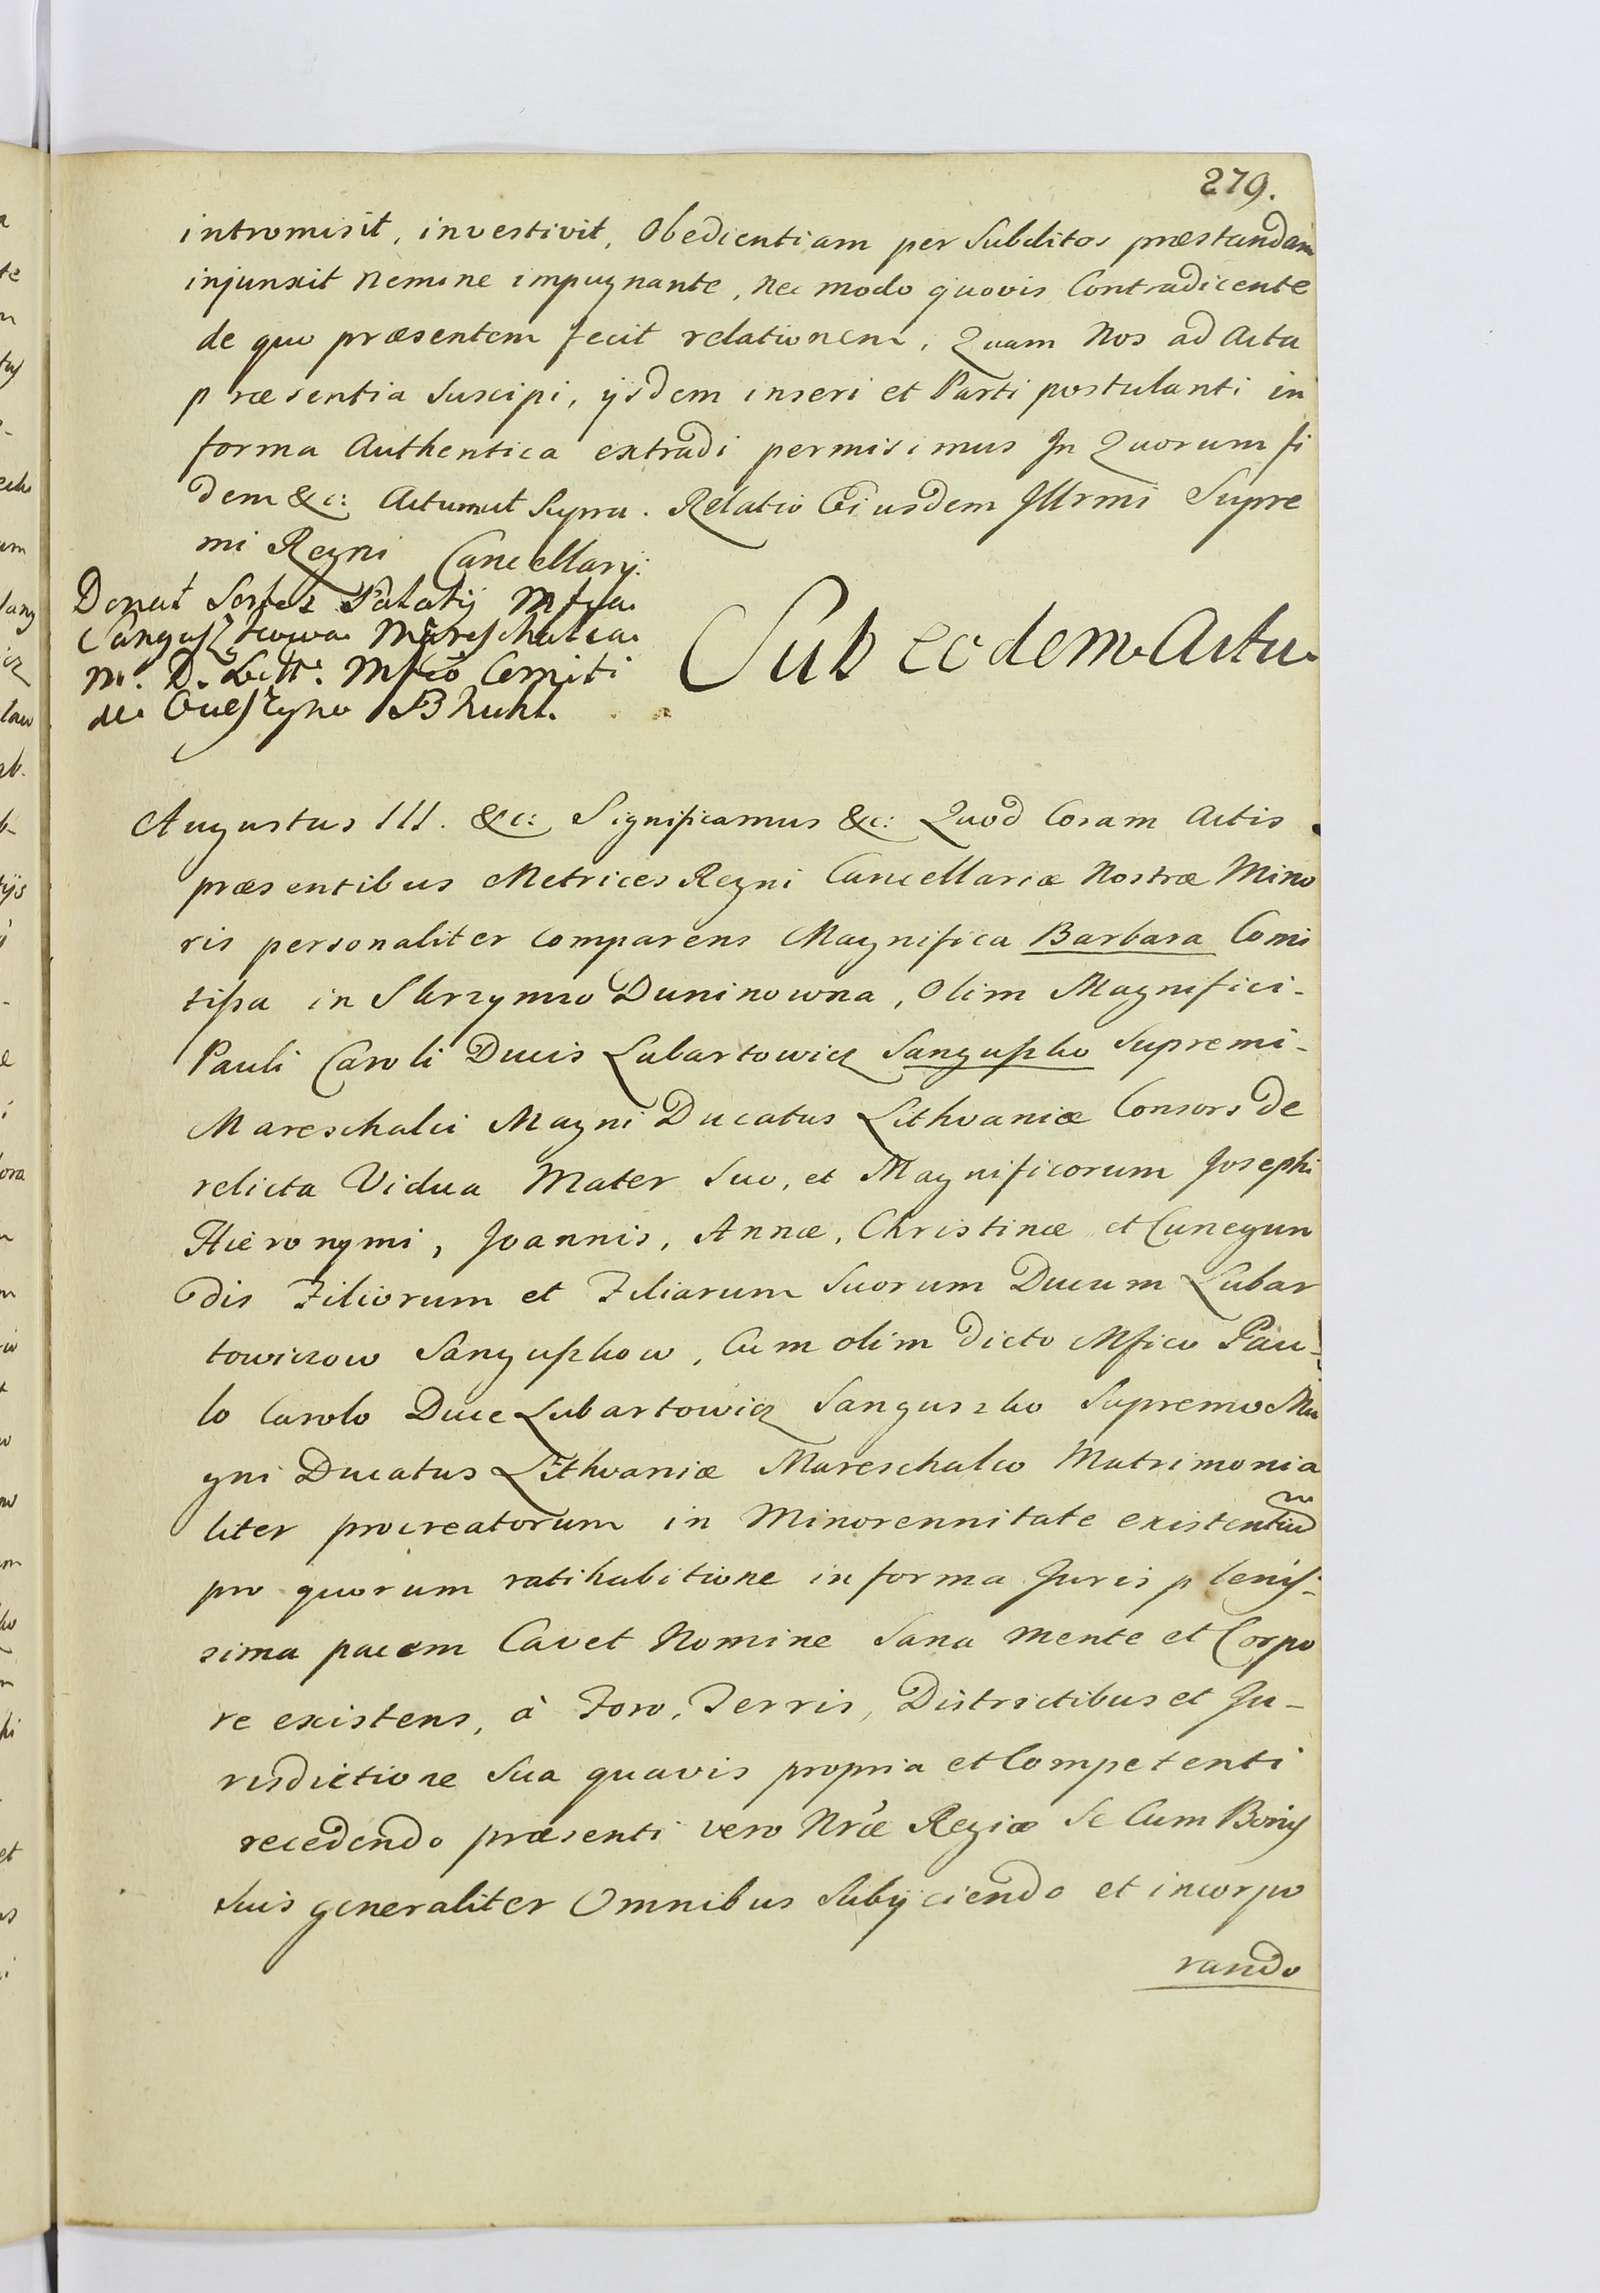 279.
intromisit, investivit, Obedientiam per Subditos præstandam
injunxit Nemine impugnante, Nec modo quovis Contradicente
de quo præsentem fecit relationem, Quam Nos ad Acta
præsentia Suscipi, ijsdem inseri et Parti postulanti in
forma Authentica extradi permisimus In Quorum fi
dem &c: Actum ut Supra. Relatio Eiusdem Illrmi Supre
mi Regni Cancellarij.
Donat Sortes Palatij Mfca
Sanguszkowa Mareschalca
M. D. Litt: Mfco Comiti
de Bruhl.
Sub eodem Actu
Augustus III. &c: Significamus &c: Quod Coram Actis
præsentibus Metrices Regni Cancellariæ Nostræ Mino
ris personaliter Comparens Magnifica Barbara Comi
tissa in Skrzynno Duninowna, Olim Magnifici
Pauli Caroli Ducis Lubartowicz Sanguszko Supremi
Mareschalci Magni Ducatus Lithvaniæ Consors de
relicta Vidua Mater Suo, et Magnificorum Josephi
Hieronymi, Joannis, Annæ, Christinæ et Cunegun
dis Filiorum et Filiarum Suorum Ducum Lubar
towiczow Sanguszkow, Cum olim dicto Mfico Pau-
lo Carolo Duce Lubartowicz Sanguszko Supremo Ma
gni Ducatus Lithvaniæ Mareschalco Matrimonia
liter procreatorum in Minorennitate existentium
pro quorum ratihabitione in forma Juris plenis-
sima pacem Cavet Nomine Sana mente et Corpo
re existens, à Foro, Terris, Districtibus et Ju-
risdictione Sua quavis propria et Competenti
recedendo præsenti vero Nræ Regiæ Se Cum Bonis
Suis generaliter Omnibus Subijciendo et incorpo
rando